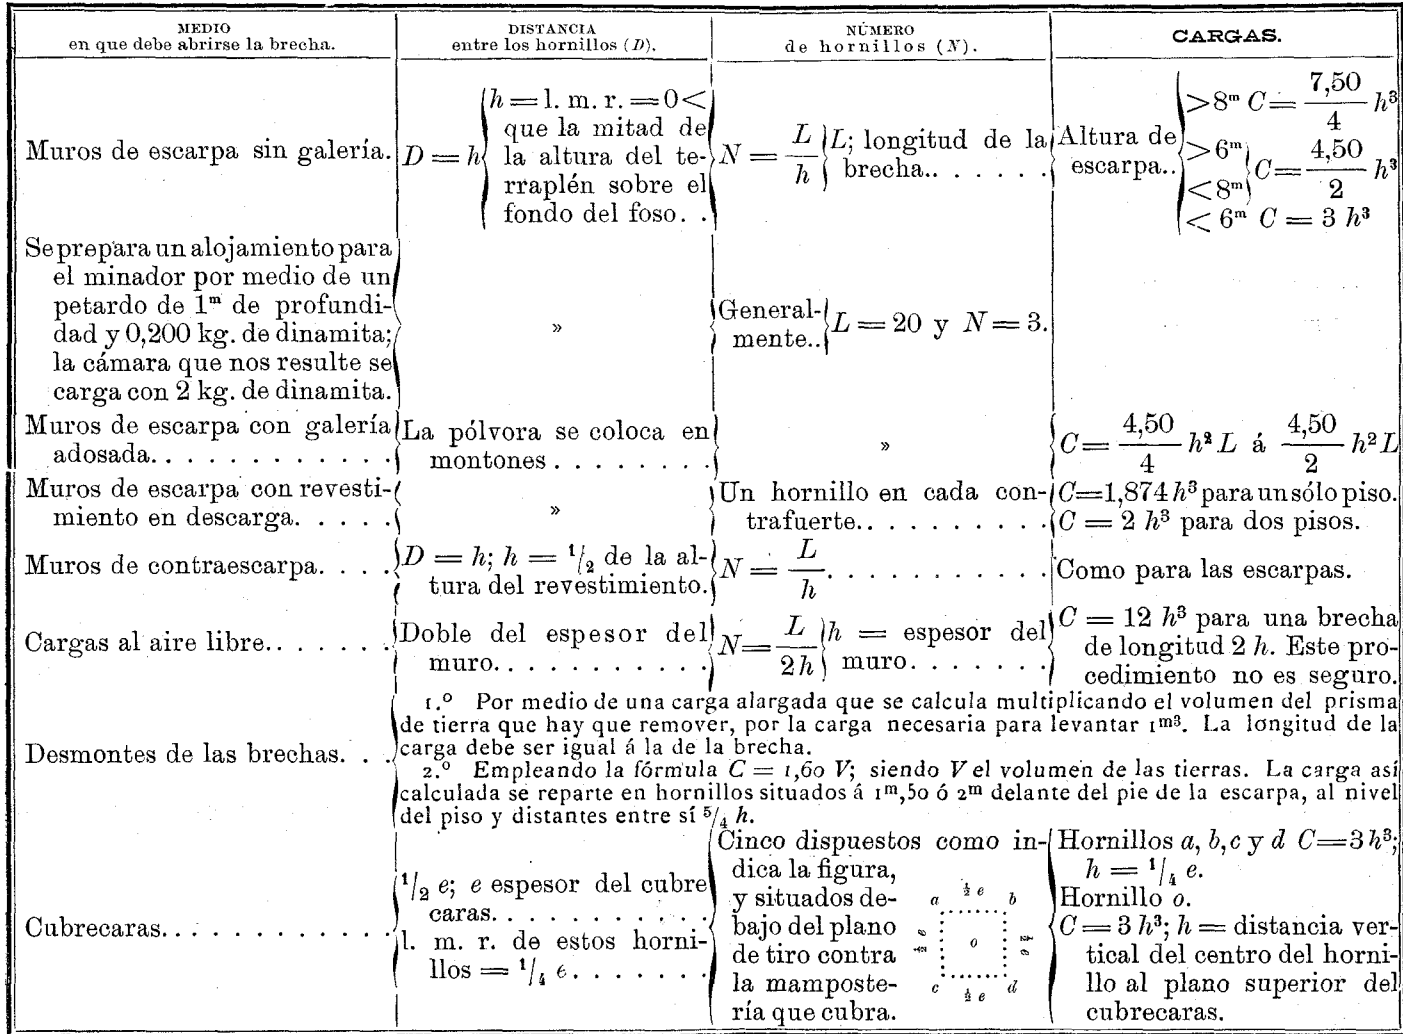 MEDIO
en que debe abrirse la brecha.
DISTANCIA
entre los hornillos (D).
NÚMERO
de hornillos (N).
CARGAS.
Muros de escarpa sin galería.
D = h
h = l. m. r. = 0 <
que la mitad de
la altura del te-
rraplén sobre el
fondo del foso. .
N = L/h
L; longitud de la
brecha.. . . . . .
Altura de
escarpa..
> 8ᵐ C = 7,50/4 h³
> 6ᵐ
< 8ᵐ
C = 4,50/2 h³
< 6ᵐ C = 3 h³
Se prepara un alojamiento para
el minador por medio de un
petardo de 1ᵐ de profundi-
dad y 0,200 kg. de dinamita;
la cámara que nos resulte se
carga con 2 kg. de dinamita.
»
General-
mente..
L = 20 y N = 3.
Muros de escarpa con galería
adosada. . . . . . . . . . . .
La pólvora se coloca en
montones . . . . . . . .
»
C = 4,50/4 h² L á 4,50/2 h² L
Muros de escarpa con revesti-
miento en descarga. . . . .
»
Un hornillo en cada con-
trafuerte.. . . . . . . . . .
C=1,874 h³ para un sólo piso.
C = 2 h³ para dos pisos.
Muros de contraescarpa. . . .
D = h; h = ¹/₂ de la al-
tura del revestimiento.
N = L/h. . . . . . . . . . . .
Como para las escarpas.
Cargas al aire libre.. . . . . .
Doble del espesor del
muro. . . . . . . . . . .
N = L/2h
h = espesor del
muro. . . . . . .
C = 12 h³ para una brecha
de longitud 2 h. Este pro-
cedimiento no es seguro.
Desmontes de las brechas. . .
1.º Por medio de una carga alargada que se calcula multiplicando el volumen del prisma
de tierra que hay que remover, por la carga necesaria para levantar 1ᵐ³. La longitud de la
carga debe ser igual á la de la brecha.
2.º Empleando la fórmula C = 1,60 V; siendo V el volumen de las tierras. La carga así
calculada se reparte en hornillos situados á 1ᵐ,50 ó 2ᵐ delante del pie de la escarpa, al nivel
del piso y distantes entre sí ⁵/₄ h.
Cubrecaras. . . . . . . . . . . .
¹/₂ e; e espesor del cubre
caras. . . . . . . . . . .
l. m. r. de estos horni-
llos = ¹/₄ e. . . . . . .
Cinco dispuestos como in-
dica la figura,
y situados de-
bajo del plano
de tiro contra
la mamposte-
ría que cubra.
a ½ e b
o
c ½ e d
Hornillos a, b, c y d C=3 h³;
h = ¹/₄ e.
Hornillo o.
C = 3 h³; h = distancia ver-
tical del centro del horni-
llo al plano superior del
cubrecaras.